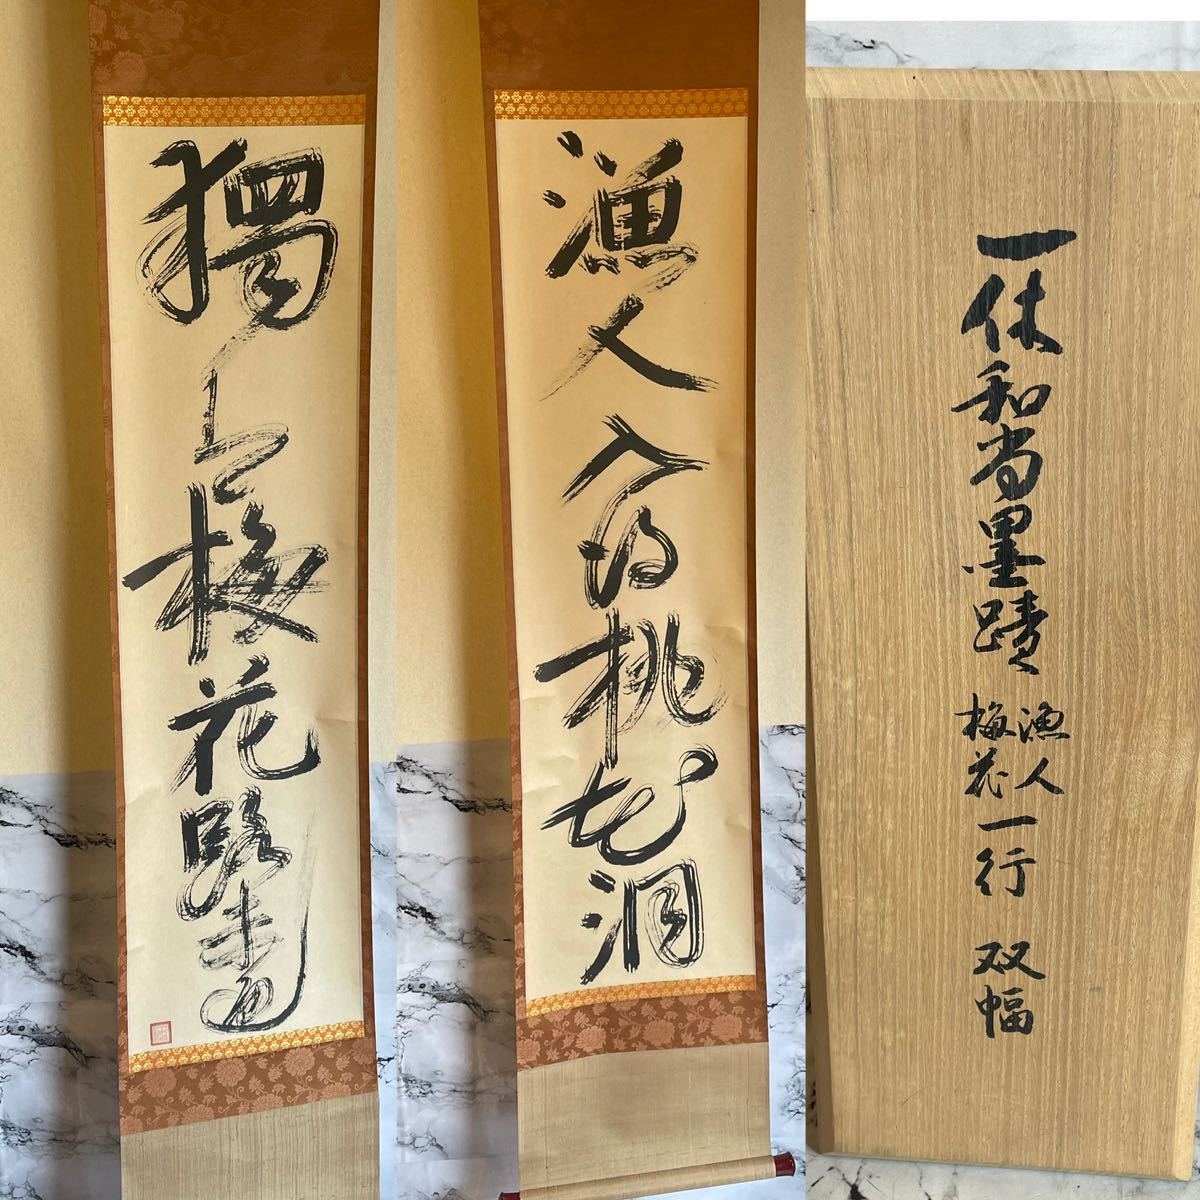 漁人入得桃花洞
獨上梅花路未通
一休和尚墨蹟
漁人
梅花
一行
双幅